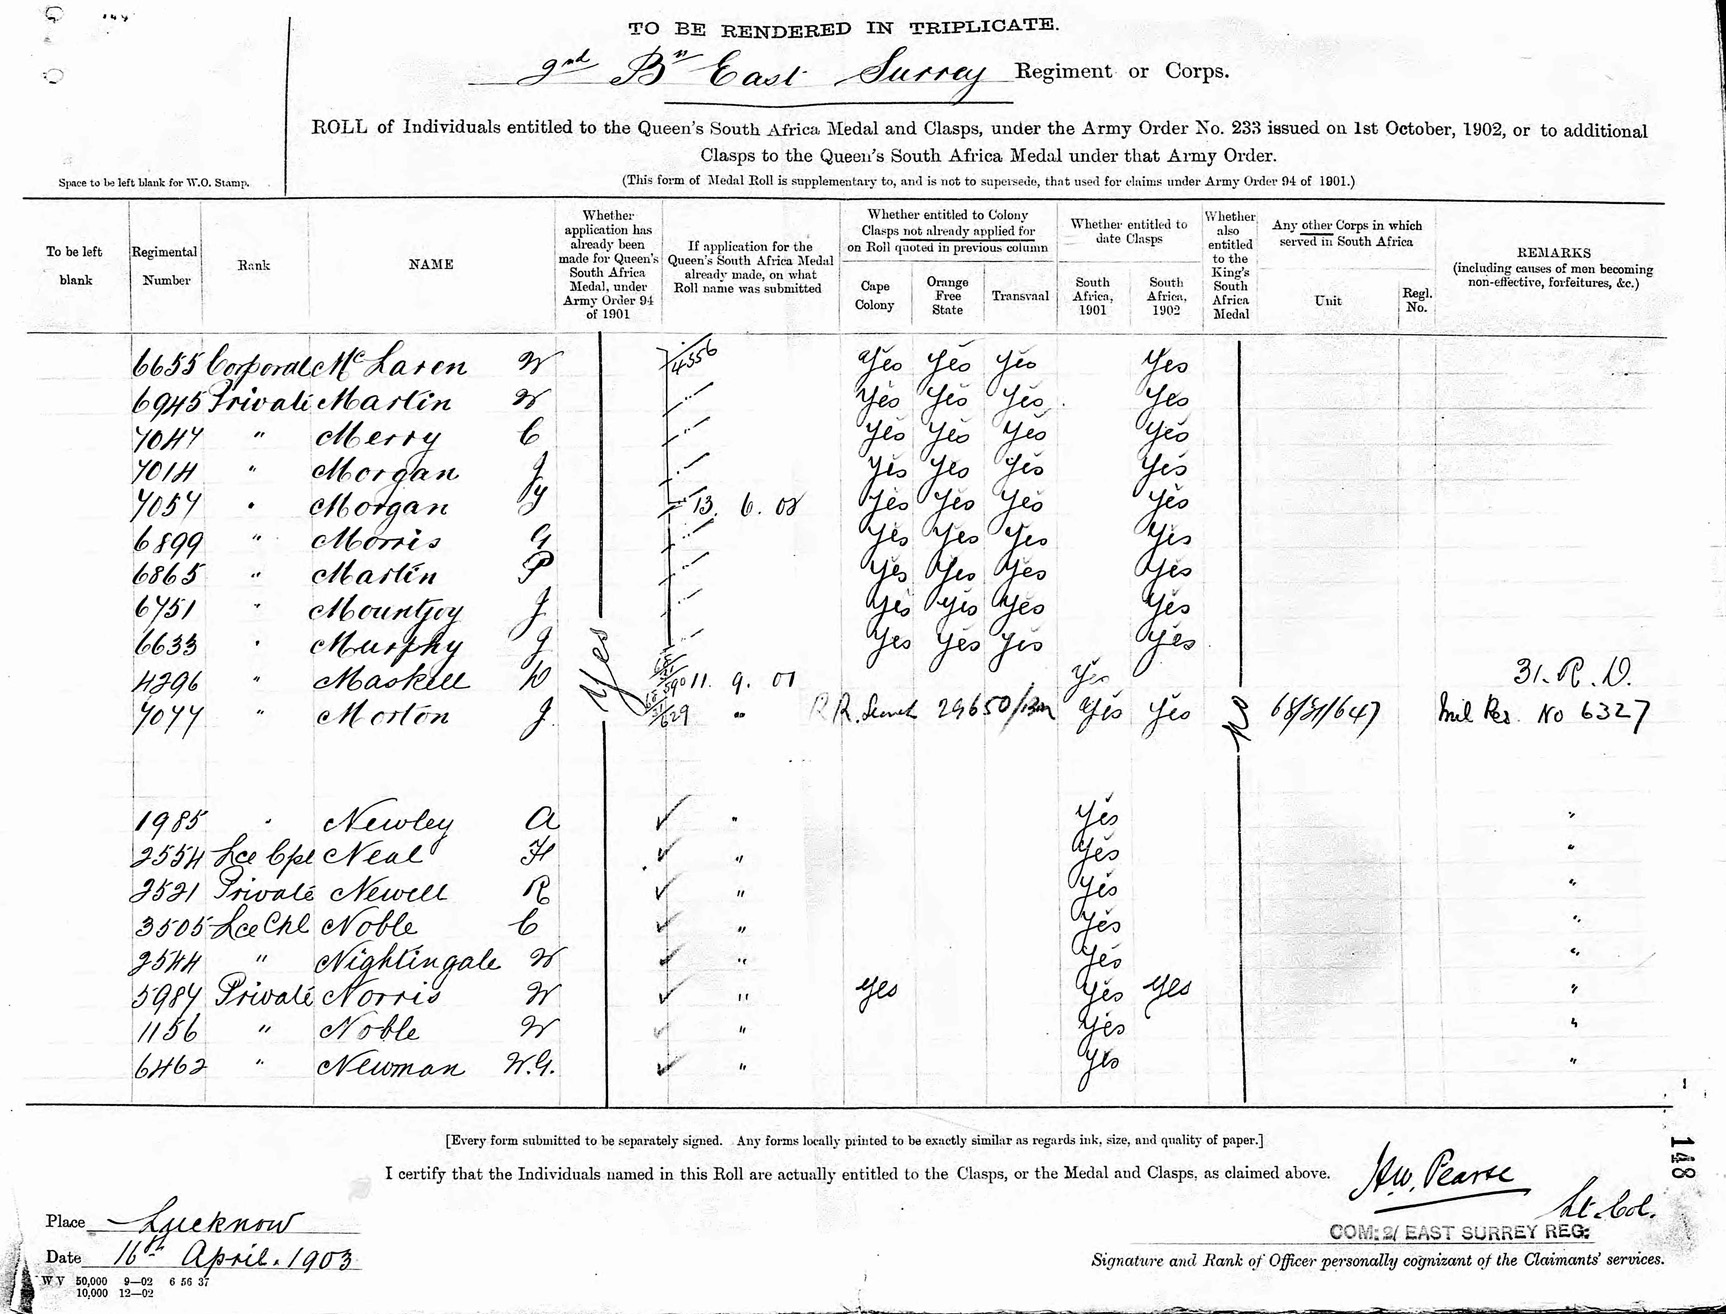 TO BE RENDERED IN TRIPLICATE.
2nd Bn East Surrey Regiment or Corps.
ROLL of Individuals entitled to the Queen's South Africa Medal and Clasps, under the Army Order No. 233 issued on 1st October, 1902, or to additional
Clasps to the Queen's South Africa Medal under that Army Order.
(This form of Medal Roll is supplementary to, and is not to supersede, that used for claims under Army Order 94 of 1901.)
Space to be left blank for W.O. Stamp.
To be left blank
Regimental Number
Rank
NAME
Whether application has already been made for Queen's South Africa Medal, under Army Order 94 of 1901
If application for the Queen's South Africa Medal already made, on what Roll name was submitted
Whether entitled to Colony Clasps not already applied for on Roll quoted in previous column
Cape Colony
Orange Free State
Transvaal
Whether entitled to date Clasps
South Africa, 1901
South Africa, 1902
Whether also entitled to the King's South Africa Medal
Any other Corps in which served in South Africa
Unit
Regl. No.
REMARKS
(including causes of men becoming non-effective, forfeitures, &c.)
6655 Corporal McLaren W 4556 Yes Yes Yes Yes
6945 Private Martin W Yes Yes Yes Yes
7047 " Merry C Yes Yes Yes Yes
7014 " Morgan J Yes Yes Yes Yes
7057 " Morgan J 13. 6. 02 Yes Yes Yes Yes
6899 " Morris G Yes Yes Yes Yes
6865 " Martin P Yes Yes Yes Yes
6751 " Mountjoy J Yes Yes Yes Yes
6633 " Murphy J Yes Yes Yes Yes
Yes
4296 " Maskell W 11. 9. 01 Yes 31. R. D.
7077 " Morton J 629 " 29650 Yes Yes No 68/21/647 Mil Res. No 6327
1985 " Newley A ✓ " Yes "
2554 Lce Cpl Neal H ✓ " Yes "
2521 Private Newell R ✓ " Yes "
3505 Lce Cpl Noble C ✓ " Yes "
2544 " Nightingale W ✓ " Yes "
5987 Private Norris W ✓ " Yes Yes Yes "
1156 " Noble W ✓ " Yes "
6462 " Newman W.G. ✓ " Yes "
[Every form submitted to be separately signed. Any forms locally printed to be exactly similar as regards ink, size, and quality of paper.]
I certify that the Individuals named in this Roll are actually entitled to the Clasps, or the Medal and Clasps, as claimed above.
H.W. Pearse
Lt. Col.
148
Place Lucknow
COM: 2/ EAST SURREY REG:
Date 16th April. 1903
Signature and Rank of Officer personally cognizant of the Claimants' services.
W V 50,000 9—02 6 56 37
10,000 12—02